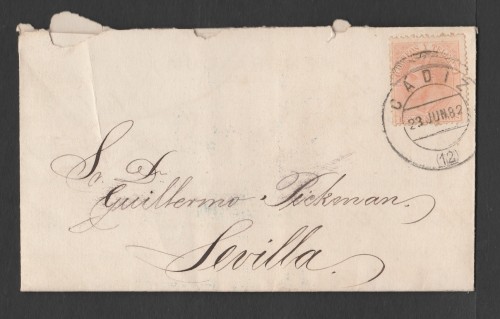 CADIZ
23 JUN.82
(12)
Sr. Dn.
Guillermo Pickman.
Sevilla.